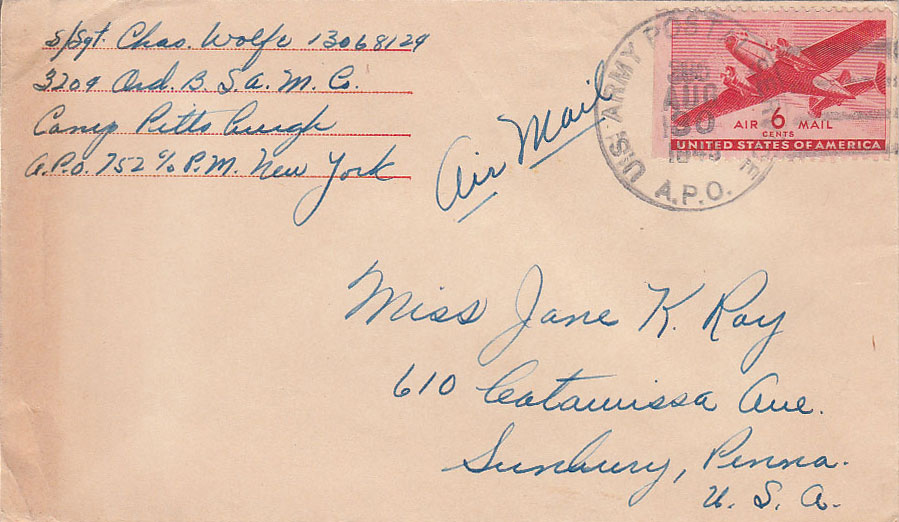 S/Sgt. Chas. Wolfe 13068129
3209 Ord. B. S. a. m. Co.
Camp Pittsburgh
A.P.O. 752 c/o P.M. New York
Air Mail
U.S. ARMY POSTAL
A.P.O.
AUG
30
AIR 6 MAIL
CENTS
UNITED STATES OF AMERICA
Miss Jane K. Ray
610 Catawissa Ave.
Sunbury, Penna.
U. S. A.